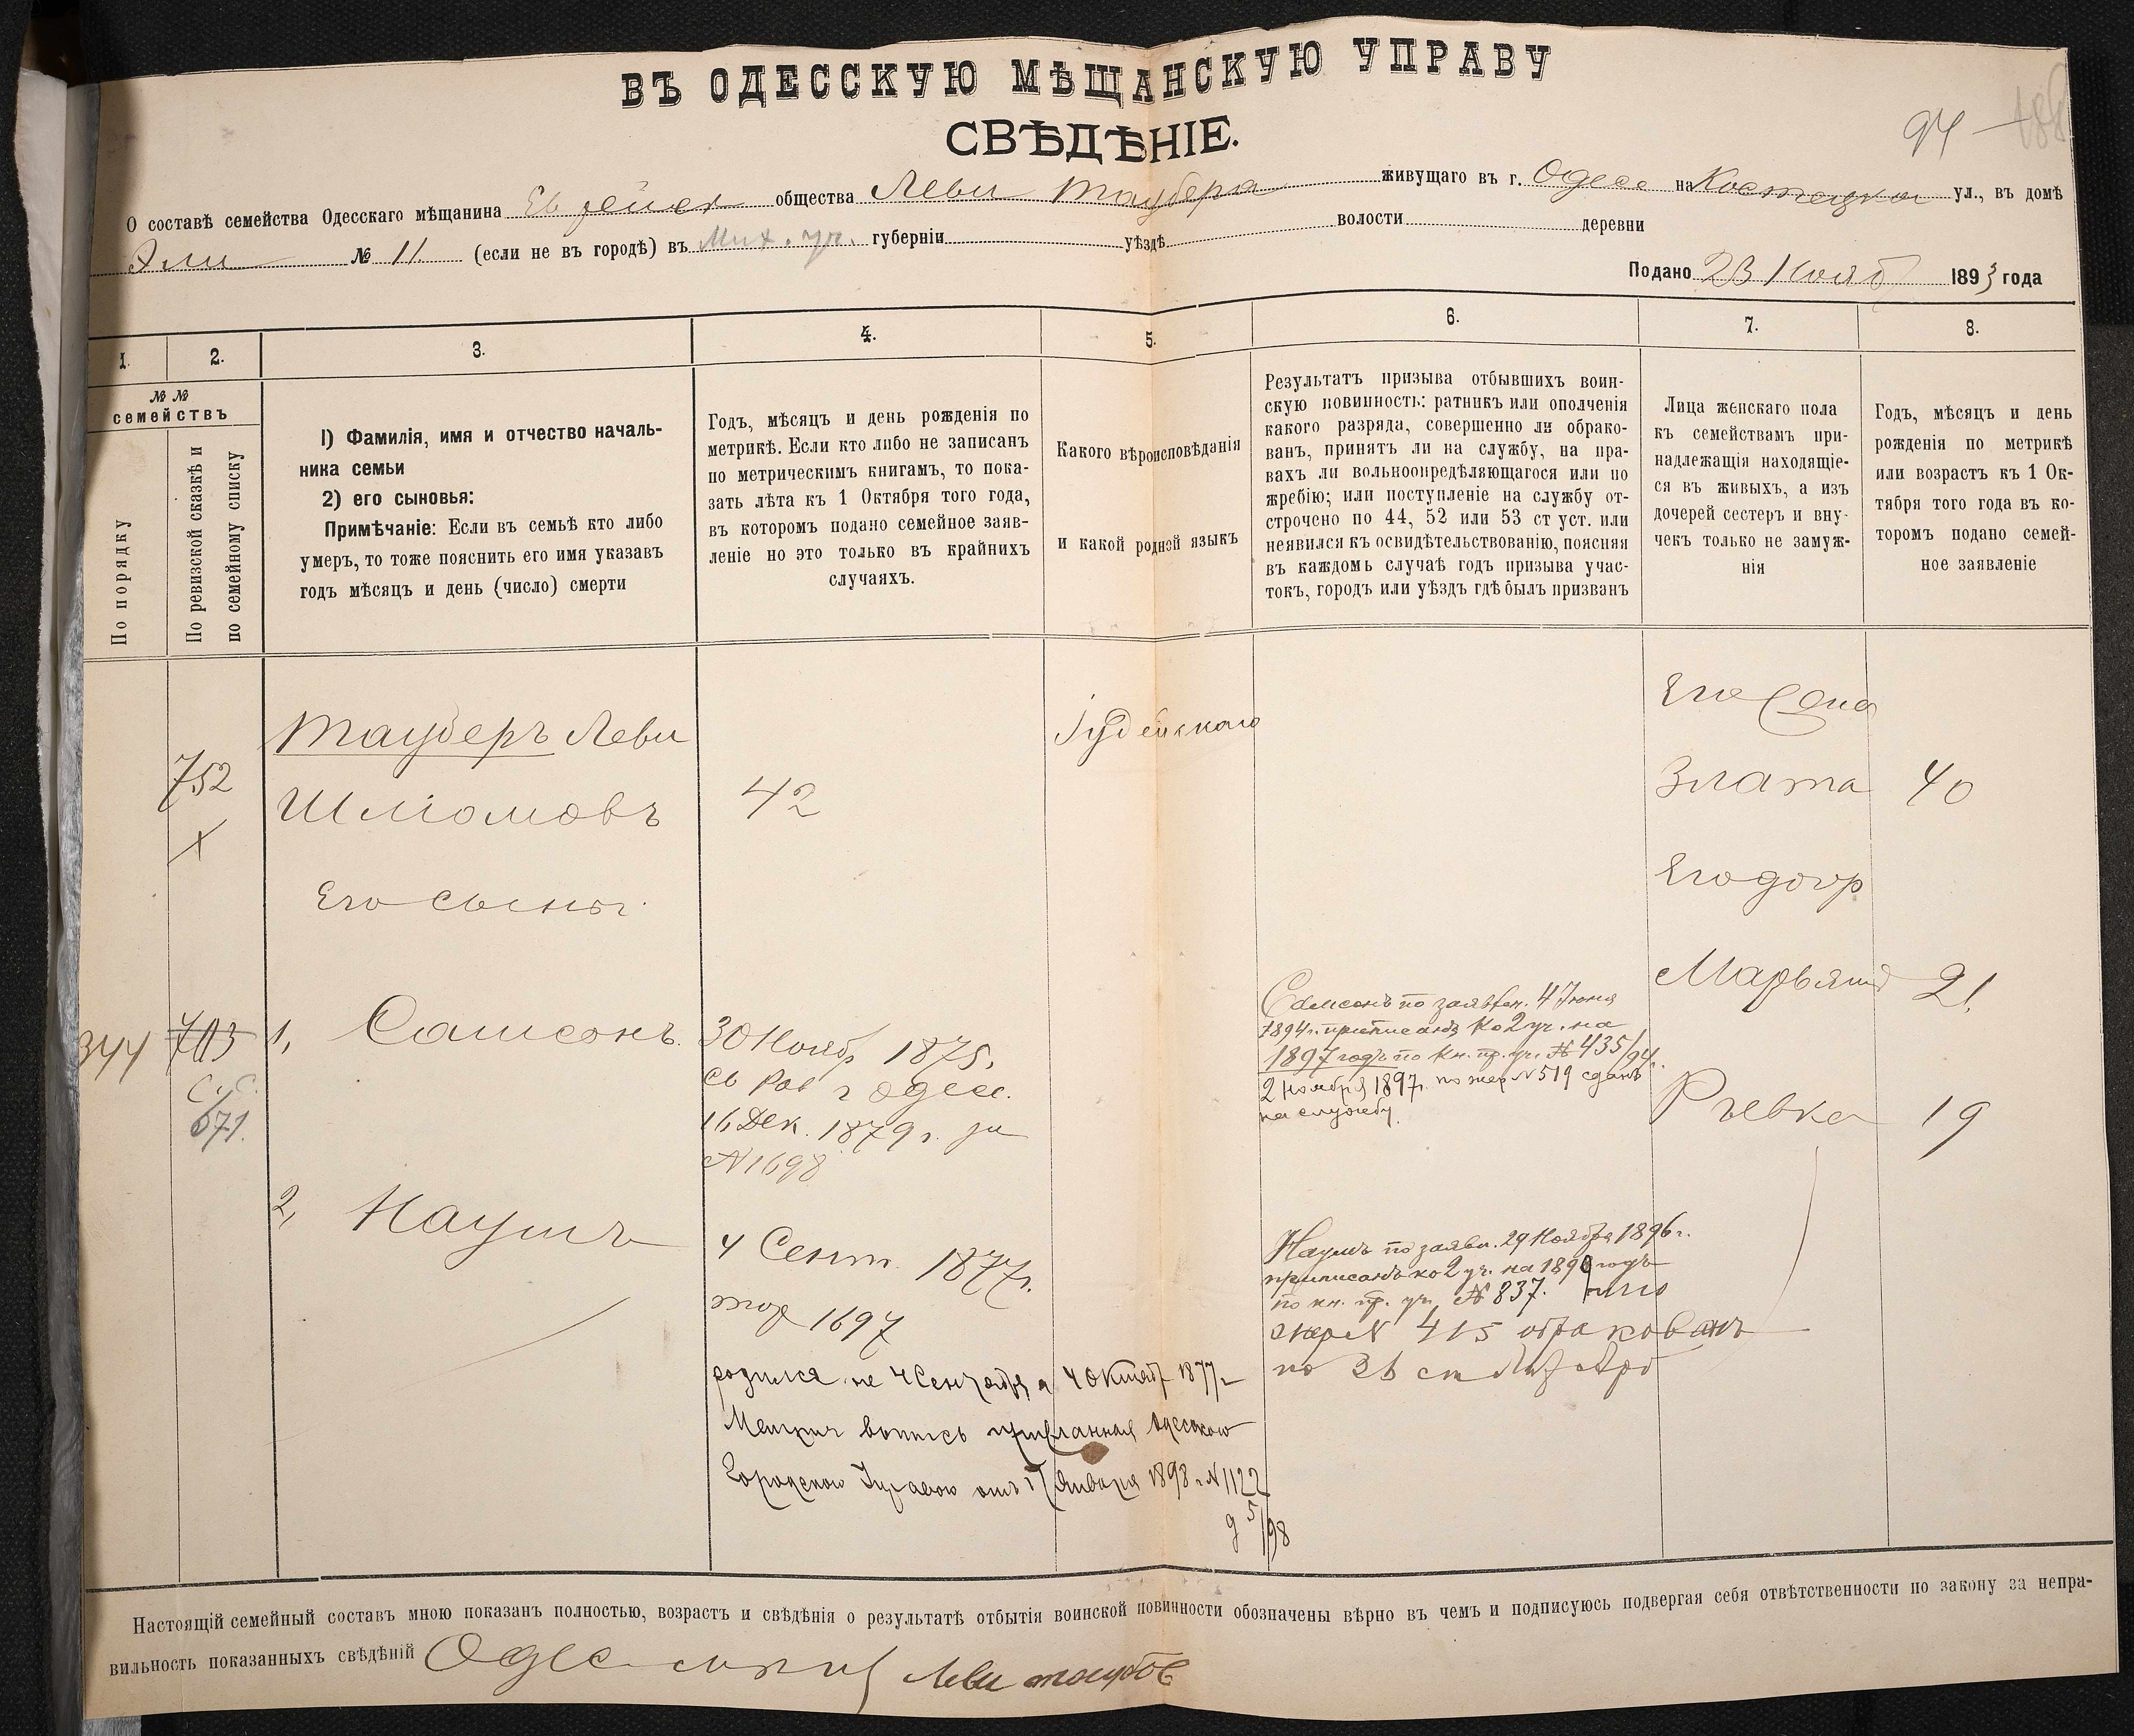 ВЪ ОДЕССКУЮ МѢЩАНСКУЮ УПРАВУ
СВѢДѢНІЕ.
94
188
О составѣ семейства Одесскаго мѣщанина Еврейск общества Леви Таубера живущаго въ г. Одесс на Костецкой ул., въ домѣ
Эли № 11. (если не въ городѣ) въ Мих. уч. губерніи уѣздѣ волости деревни
Подано 23 Нояб 1893 года
1. 2. 3. 4. 5. 6. 7. 8.
№ №
семействъ
По порядку
По ревизской сказкѣ и
по семейному списку
1) Фамилія, имя и отчество началь-
ника семьи
2) его сыновья:
Примѣчаніе: Если въ семьѣ кто либо
умеръ, то тоже пояснить его имя указавъ
годъ мѣсяцъ и день (число) смерти
Годъ, мѣсяцъ и день рожденія по
метрикѣ. Если кто либо не записанъ
по метрическимъ книгамъ, то пока-
зать лѣта къ 1 Октября того года,
въ которомъ подано семейное заяв-
леніе но это только въ крайнихъ
случаяхъ.
Какого вѣроисповѣданія
и какой родной языкъ
Результатъ призыва отбывшихъ воин-
скую повинность: ратникъ или ополченія
какого разряда, совершенно ли обрако-
ванъ, принятъ ли на службу, на пра-
вахъ ли вольноопредѣляющагося или по
жребію; или поступленіе на службу от-
строчено по 44, 52 или 53 ст уст. или
неявился къ освидѣтельствованію, поясняя
въ каждомъ случаѣ годъ призыва учас-
токъ, городъ или уѣздъ гдѣ былъ призванъ
Лица женскаго пола
къ семействамъ при-
надлежащія находящіе-
ся въ живыхъ, а изъ
дочерей сестеръ и вну-
чекъ только не замуж-
нія
Годъ, мѣсяцъ и день
рожденія по метрикѣ
или возрастъ къ 1 Ок-
тября того года въ ко-
торомъ подано семей-
ное заявленіе
752
Тауберъ Леви
Шліомовъ
42
Іудейскаго
Его жена
Злата 40
Его сыны
Его дочр
Марьям 21
344 703
С. С.
671.
1, Самсонъ.
30 Нояб 1875,
св Рав г Одесс.
16 Дек. 1879 г. за
№ 1698
Самсонъ по заявлен. 4 Іюня
1894 г. приписанъ ко 2 уч. на
1897 годъ по кн. пр. уч. № 435/94 г.
2 ноября 1897 г. по жер № 519 сданъ
на службу.
Ривка 19
2, Наумъ
4 Сент. 1877 г.
тож 1697
родился не 4 Сентября а 4 Октяб 1877 г
Метрич выпись присланная Одесскою
Городскою Управою отъ 17 Января 1898 г. № 1122
д 5/98
Наумъ по заявл. 29 Ноября 1896 г.
приписанъ ко 2 уч. на 1899 годъ
по кн. пр. уч. № 837.
жер № 415 обракованъ
по 36 ст
Настоящій семейный составъ мною показанъ полностью, возрастъ и свѣдѣнія о результатѣ отбытія воинской повинности обозначены вѣрно въ чемъ и подписуюсь подвергая себя отвѣтственности по закону за непра-
вильность показанныхъ свѣдѣній Одес Леви Таубер